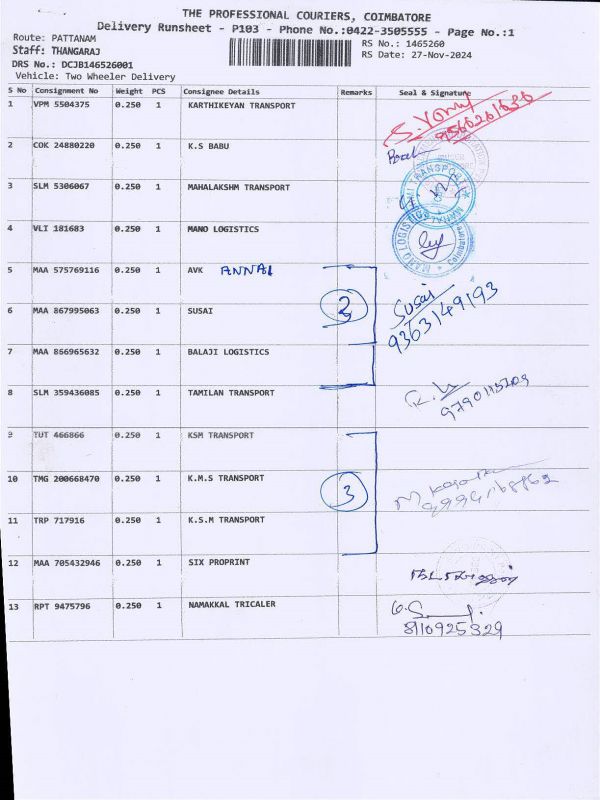 THE PROFESSIONAL COURIERS, COIMBATORE
Delivery Runsheet - P103 - Phone No.:0422-3505555 - Page No.:1
Route: PATTANAM
RS No.: 1465260
Staff: THANGARAJ
RS Date: 27-Nov-2024
DRS No.: DCJB146526001
Vehicle: Two Wheeler Delivery
S No Consignment No Weight PCS Consignee Details Remarks Seal & Signature
1 VPM 5504375 0.250 1 KARTHIKEYAN TRANSPORT
2 COK 24880220 0.250 1 K.S BABU
3 SLM 5306067 0.250 1 MAHALAKSHM TRANSPORT
4 VLI 181683 0.250 1 MANO LOGISTICS
MANO LOGISTICS Coimbatore
5 MAA 575769116 0.250 1 AVK ANNAI
6 MAA 867995063 0.250 1 SUSAI 2 Susai
9363149193
7 MAA 866965632 0.250 1 BALAJI LOGISTICS
8 SLM 359436085 0.250 1 TAMILAN TRANSPORT
9790115209
9 TUT 466866 0.250 1 KSM TRANSPORT
10 TMG 200668470 0.250 1 K.M.S TRANSPORT 3
11 TRP 717916 0.250 1 K.S.M TRANSPORT
12 MAA 705432946 0.250 1 SIX PROPRINT
13 RPT 9475796 0.250 1 NAMAKKAL TRICALER
8110925329